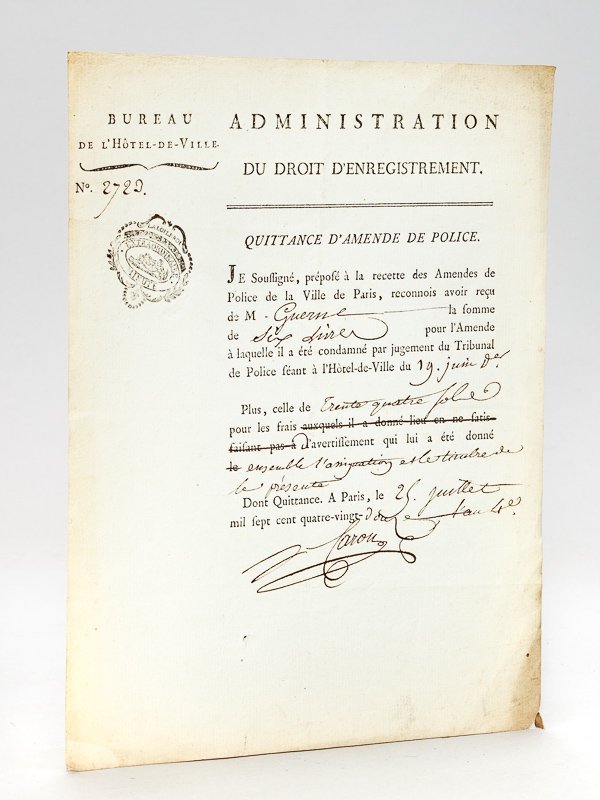 BUREAU
DE L'HÔTEL-DE-VILLE.
Nº. 2729.
ADMINISTRATION
DU DROIT D'ENREGISTREMENT.
QUITTANCE D'AMENDE DE POLICE.
JE Soussigné, préposé à la recette des Amendes de
Police de la Ville de Paris, reconnois avoir reçu
de M - Guerne la somme
de Six Livres pour l'Amende
à laquelle il a été condamné par jugement du Tribunal
de Police séant à l'Hôtel-de-Ville du 19. juin der
Plus, celle de Trente quatre sols
pour les frais auxquels il a donné lieu en ne satis-
faisant pas à l'avertissement qui lui a été donné
le ensemble l'assignation et le timbre de
la présente
Dont Quittance. A Paris, le 25. juillet
mil sept cent quatre-vingt-douze l'an 4e.
Caron